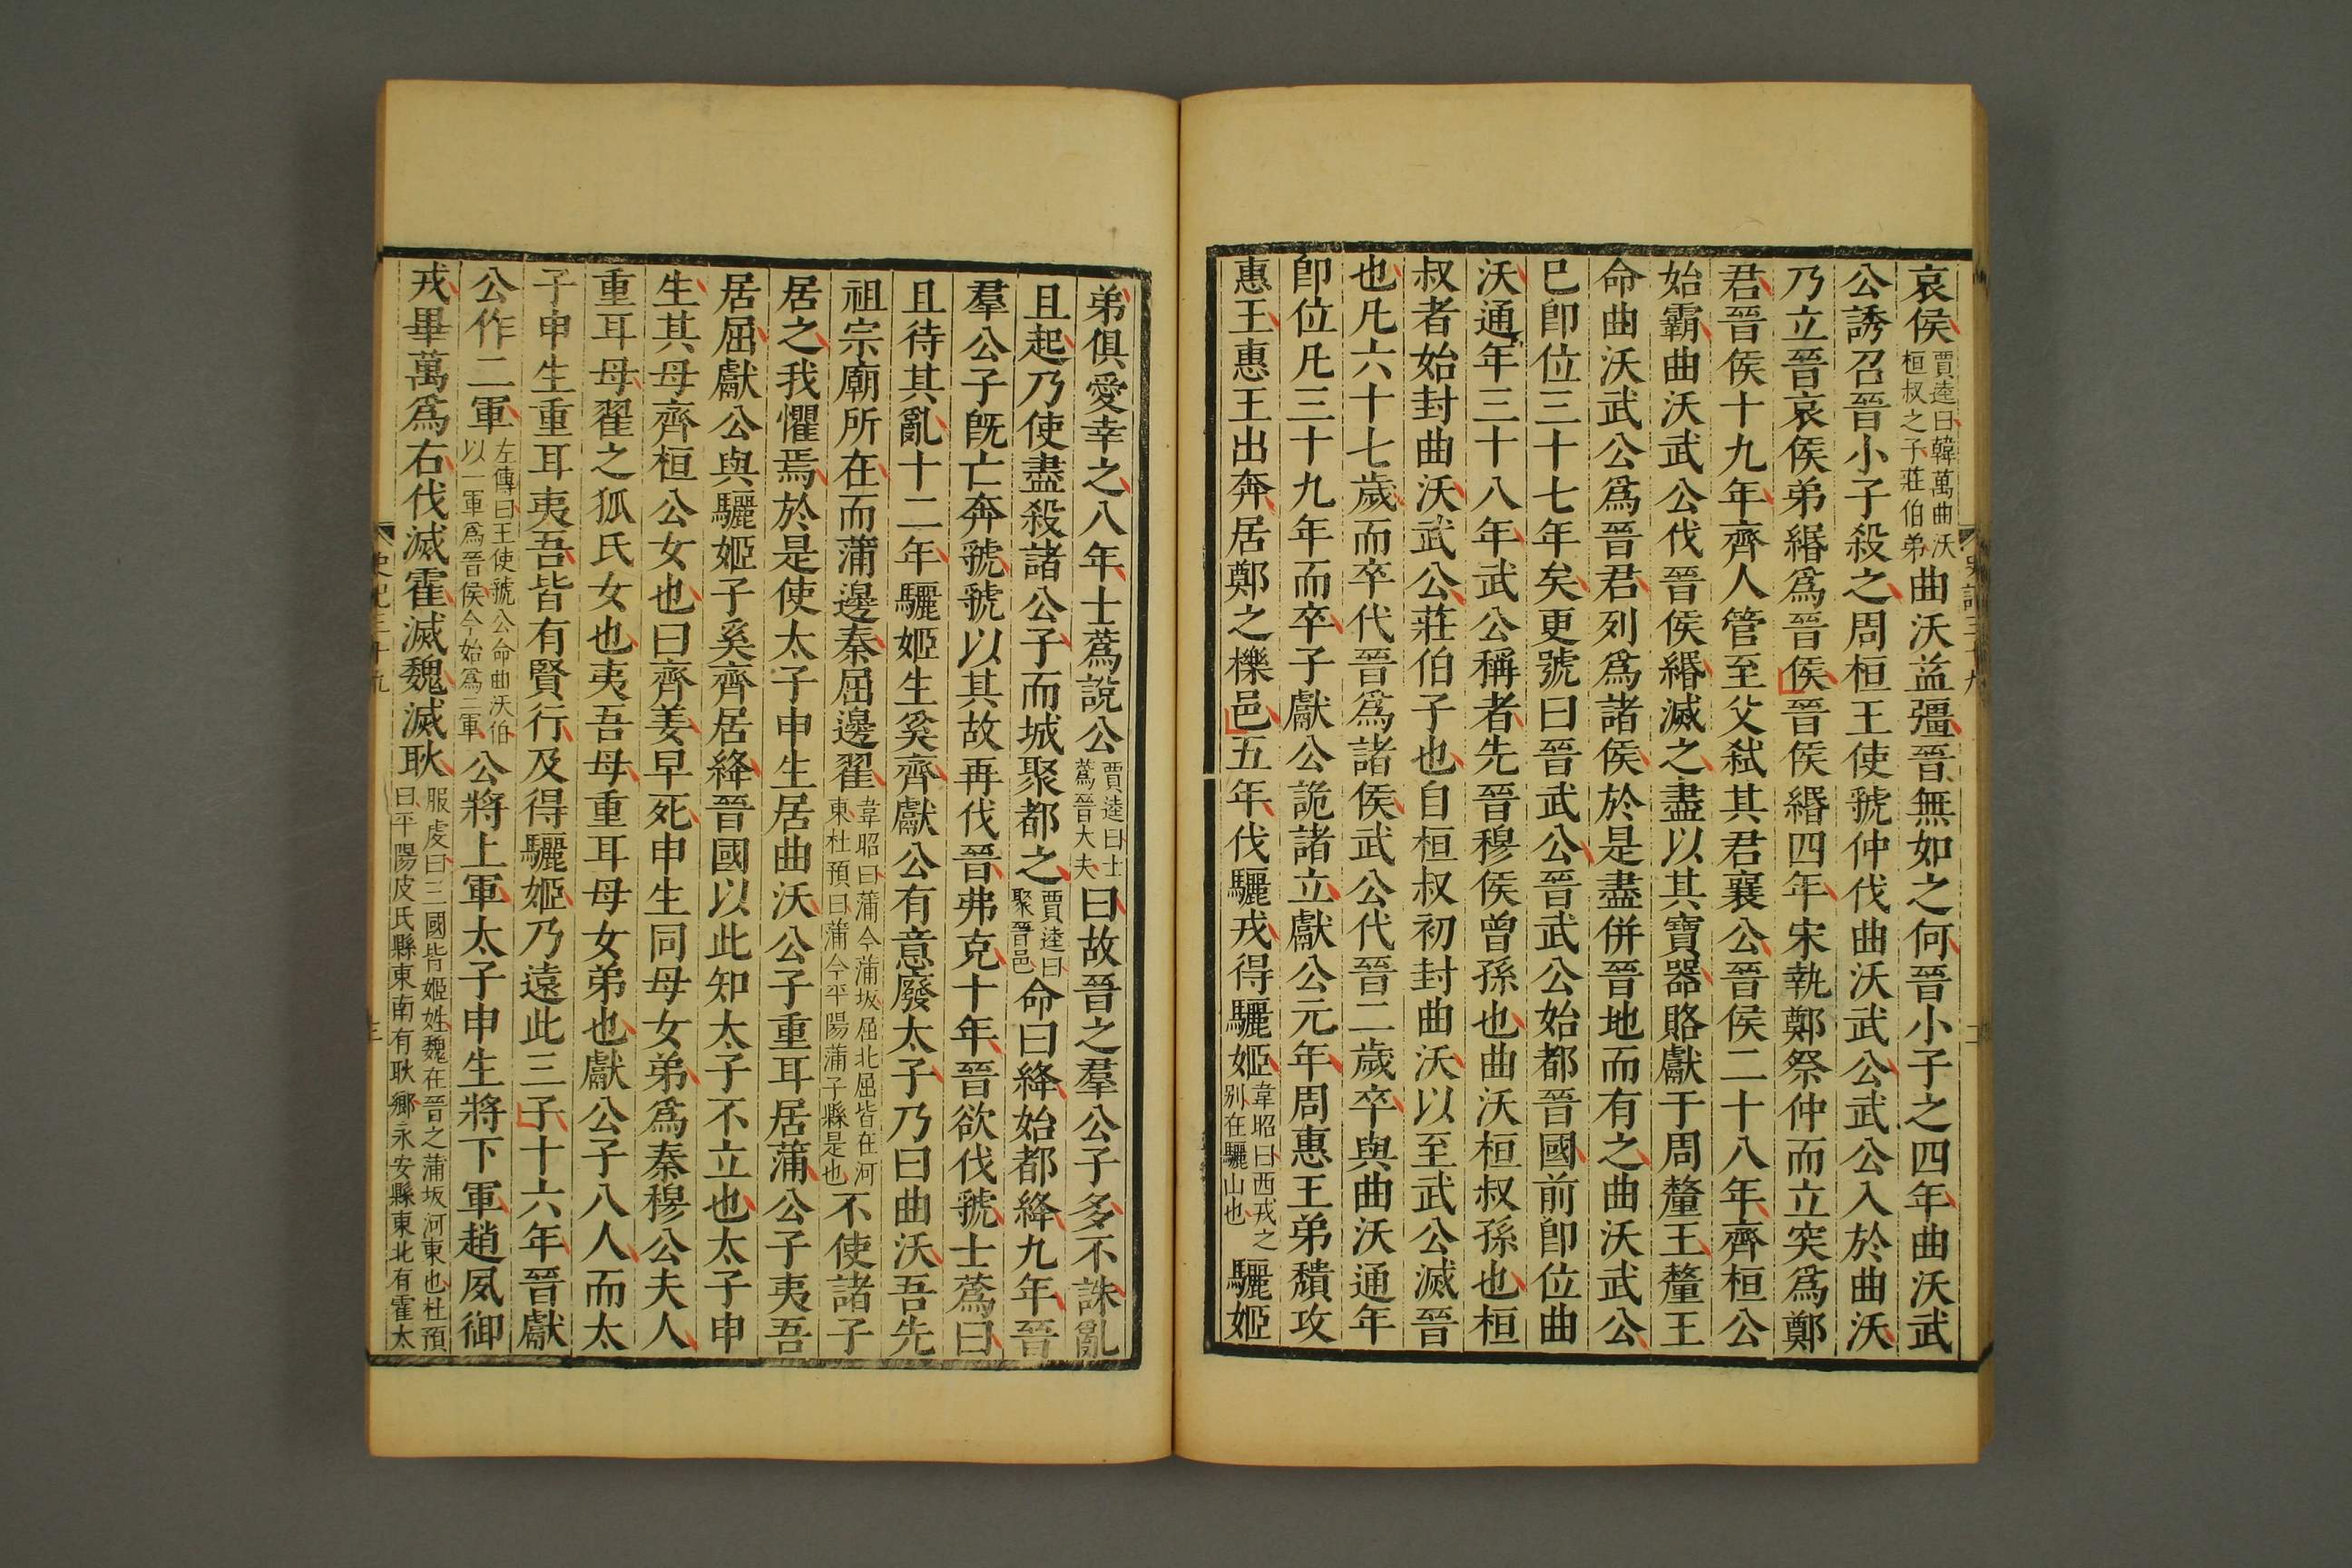 哀侯賈逵曰韓萬曲沃桓叔之子莊伯弟曲沃益彊晉無如之何晉小子之四年曲沃武
公誘召晉小子殺之周桓王使虢仲伐曲沃武公武公入於曲沃
乃立晉哀侯弟緡爲晉侯晉侯緡四年宋執鄭祭仲而立突爲鄭
君晉侯十九年齊人管至父弑其君襄公晉侯二十八年齊桓公
始霸曲沃武公伐晉侯緡滅之盡以其寶器賂獻于周釐王釐王
命曲沃武公爲晉君列爲諸侯於是盡併晉地而有之曲沃武公
已即位三十七年矣更號曰晉武公晉武公始都晉國前即位曲
沃通年三十八年武公稱者先晉穆侯曾孫也曲沃桓叔孫也桓
叔者始封曲沃武公莊伯子也自桓叔初封曲沃以至武公滅晉
也凡六十七歲而卒代晉爲諸侯武公代晉二歲卒與曲沃通年
即位凡三十九年而卒子獻公詭諸立獻公元年周惠王弟穨攻
惠王惠王出奔居鄭之櫟邑五年伐驪戎得驪姬韋昭曰西戎之别在驪山也驪姬
弟俱愛幸之八年士蔿說公賈逵曰士蔿晉大夫曰故晉之羣公子多不誅亂
且起乃使盡殺諸公子而城聚都之賈逵曰聚晉邑命曰絳始都絳九年晉
羣公子旣亡奔虢虢以其故再伐晉弗克十年晉欲伐虢士蔿曰
且待其亂十二年驪姬生奚齊獻公有意廢太子乃曰曲沃吾先
祖宗廟所在而蒲邊秦屈邊翟韋昭曰蒲今蒲坂屈北屈皆在河東杜預曰蒲今平陽蒲子縣是也不使諸子
居之我懼焉於是使太子申生居曲沃公子重耳居蒲公子夷吾
居屈獻公與驪姬子奚齊居絳晉國以此知太子不立也太子申
生其母齊桓公女也曰齊姜早死申生同母女弟爲秦穆公夫人
重耳母翟之狐氏女也夷吾母重耳母女弟也獻公子八人而太
子申生重耳夷吾皆有賢行及得驪姬乃遠此三子十六年晉獻
公作二軍左傳曰王使虢公命曲沃伯以一軍爲晉侯今始爲二軍公將上軍太子申生將下軍趙夙御
戎畢萬爲右伐滅霍滅魏滅耿服虔曰三國皆姬姓魏在晉之蒲坂河東也杜預曰平陽皮氏縣東南有耿鄉永安縣東北有霍太
史記三十九
三